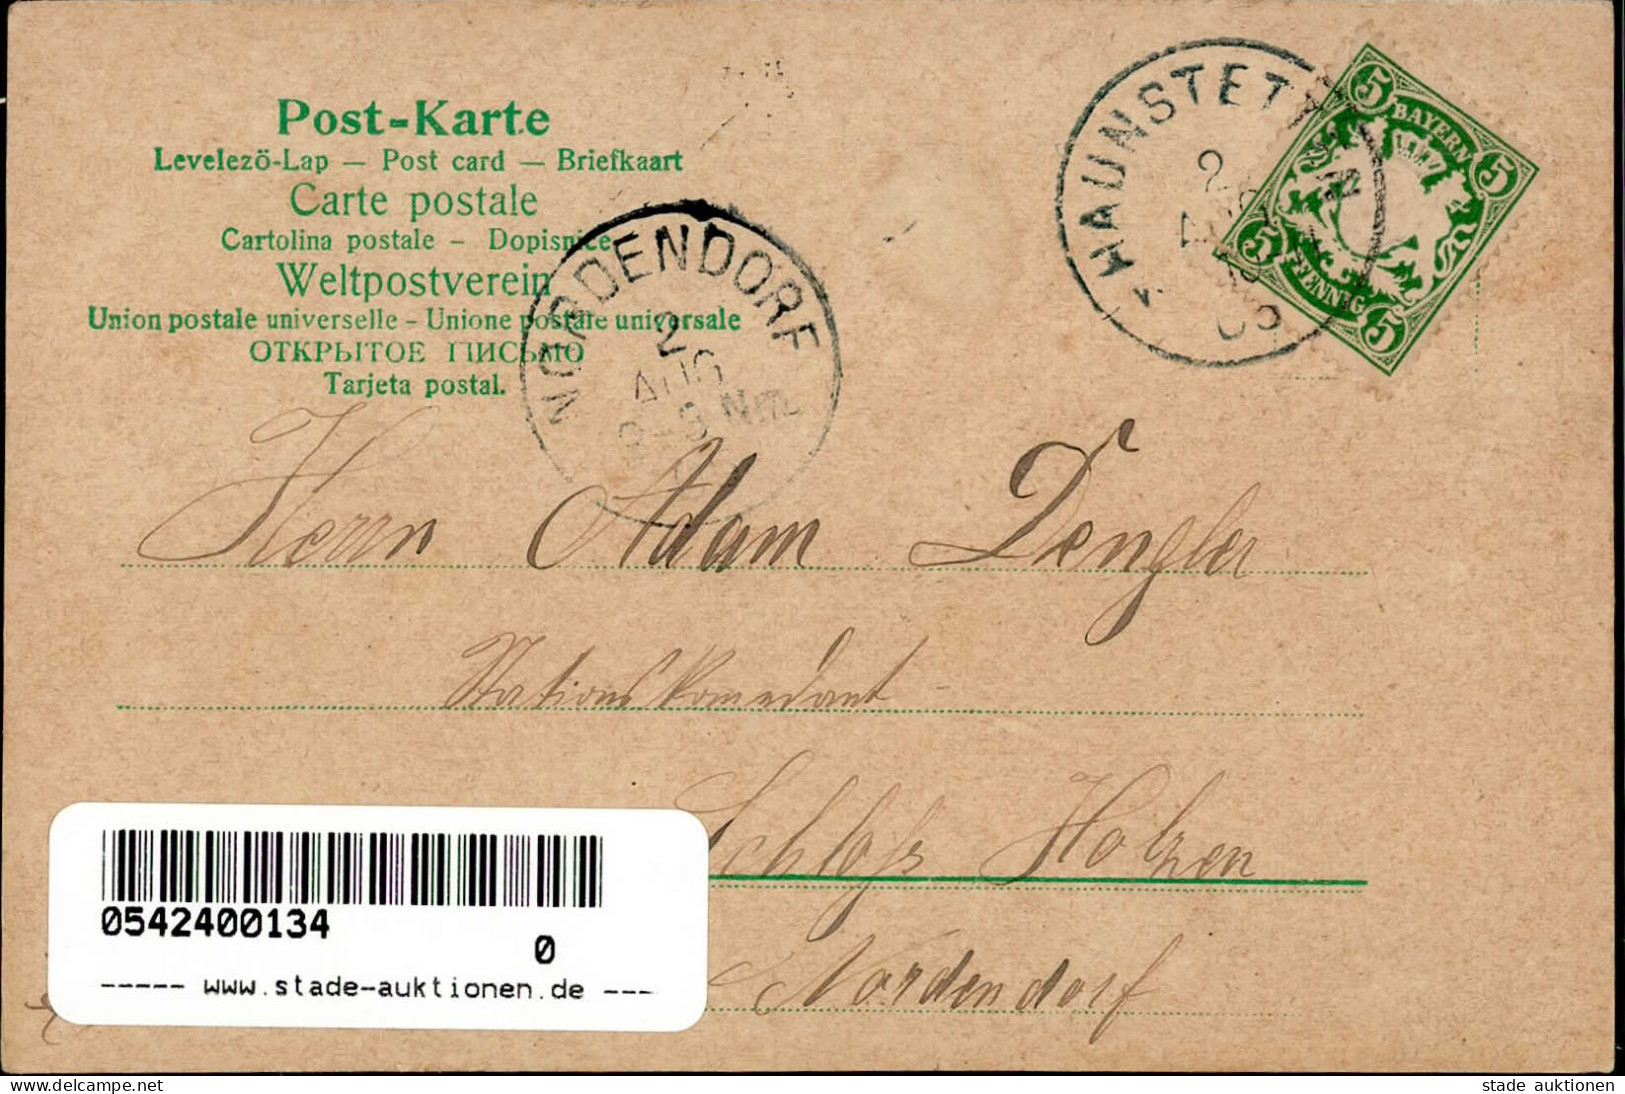 Post-Karte
Levelező-Lap — Post card — Briefkaart
Carte postale
Cartolina postale – Dopisnice
Weltpostverein
Union postale universelle – Unione postale universale
ОТКРЫТОЕ ПИСЬМО
Tarjeta postal.
NORDENDORF
2
AUG
2-3 Nm
HAUNSTETTEN
2
AUG
03
5 BAYERN 5
5 PFENNIG 5
Herrn Adam Dengler
Stationskomedant
Schloss Holzen
Nordendorf
0542400134
0
----- www.stade-auktionen.de ---
stade-auktionen.delcampe.net
stade auktionen